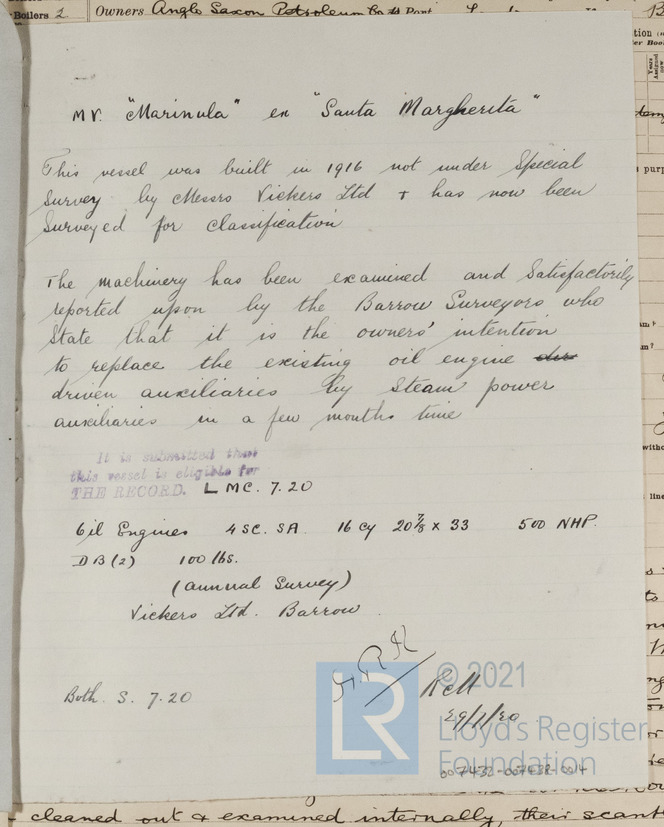 Boilers 2
Owners Anglo Saxon Petroleum Co Ld Port
MV. "Marinula" ex "Santa Margherita"
This vessel was built in 1916 not under Special
Survey by Messrs Vickers Ltd + has now been
Surveyed for classification
The machinery has been examined and Satisfactorily
reported upon by the Barrow Surveyors who
State that it is the owners' intention
to replace the existing oil engine
driven auxiliaries by Steam power
auxiliaries in a few months time
It is submitted that
this vessel is eligible for
THE RECORD. LMC. 7.20
Oil Engines 4 SC. SA 16 Cy 20 7/8 x 33 500 NHP.
DB (2) 100 lbs.
(annual Survey)
Vickers Ltd. Barrow
Both. S. 7.20
29/7/20
© 2021
LR
Lloyd's Register
Foundation
007432-007438-0014
cleaned out & examined internally, their scant